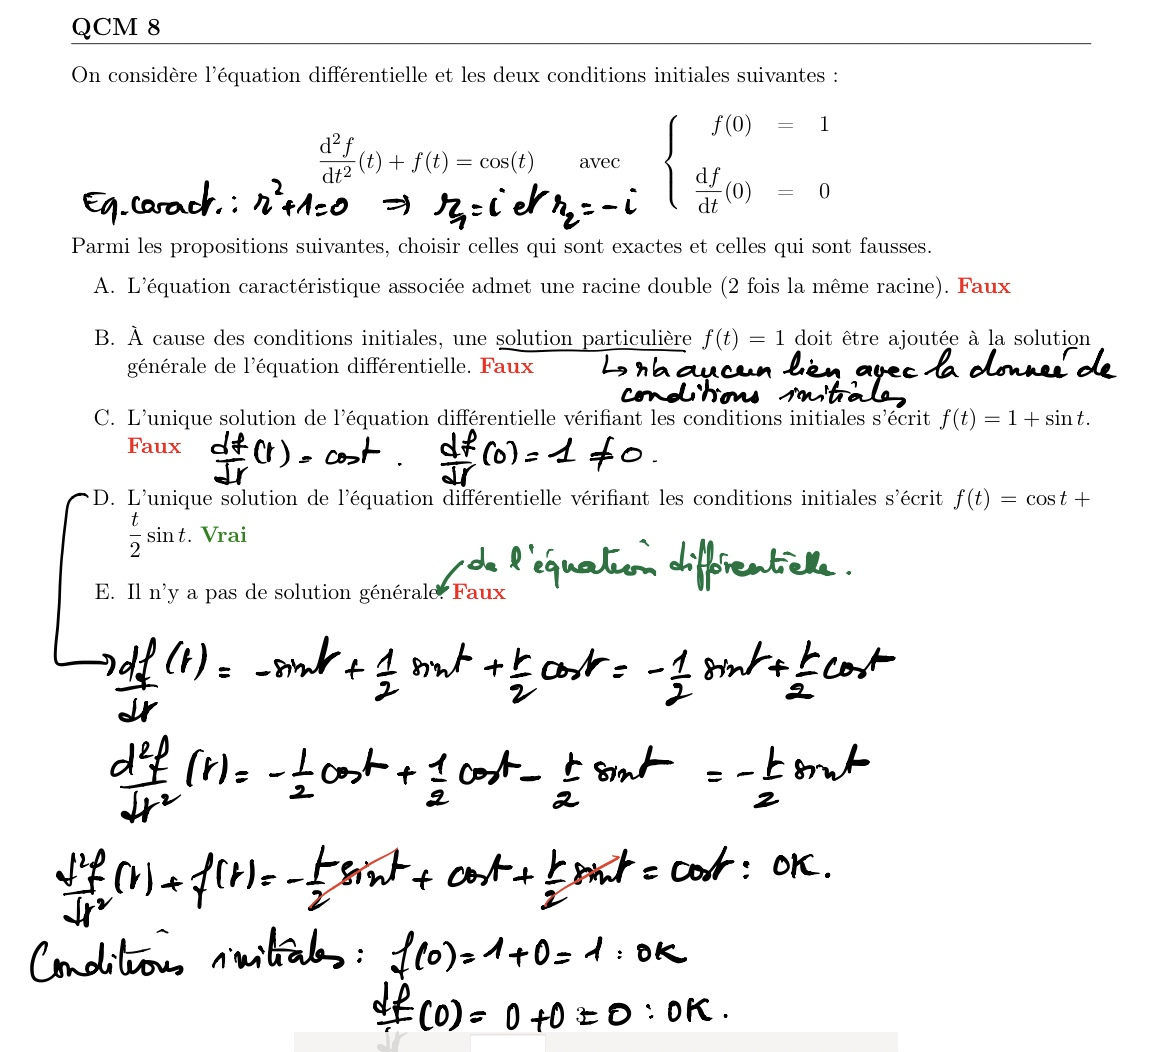 QCM 8
On considère l'équation différentielle et les deux conditions initiales suivantes :
d²f/dt²(t) + f(t) = cos(t) avec { f(0) = 1
df/dt(0) = 0
Eq. caract. : r²+1=0 ⇒ r₁=i et r₂=-i
Parmi les propositions suivantes, choisir celles qui sont exactes et celles qui sont fausses.
A. L'équation caractéristique associée admet une racine double (2 fois la même racine). Faux
B. À cause des conditions initiales, une solution particulière f(t) = 1 doit être ajoutée à la solution
générale de l'équation différentielle. Faux ↳ n'a aucun lien avec la donnée de
conditions initiales
C. L'unique solution de l'équation différentielle vérifiant les conditions initiales s'écrit f(t) = 1 + sin t.
Faux df/dt(t) = cost. df/dt(0) = 1 ≠ 0.
D. L'unique solution de l'équation différentielle vérifiant les conditions initiales s'écrit f(t) = cos t +
t/2 sin t. Vrai
de l'équation différentielle.
E. Il n'y a pas de solution générale. Faux
df/dt(t) = -sint + 1/2 sint + t/2 cost = -1/2 sint + t/2 cost
d²f/dt²(t) = -1/2 cost + 1/2 cost - t/2 sint = -t/2 sint
d²f/dt²(t) + f(t) = -t/2 sint + cost + t/2 sint = cost : OK.
Conditions initiales : f(0) = 1+0 = 1 : OK
df/dt(0) = 0+0 = 0 : OK.